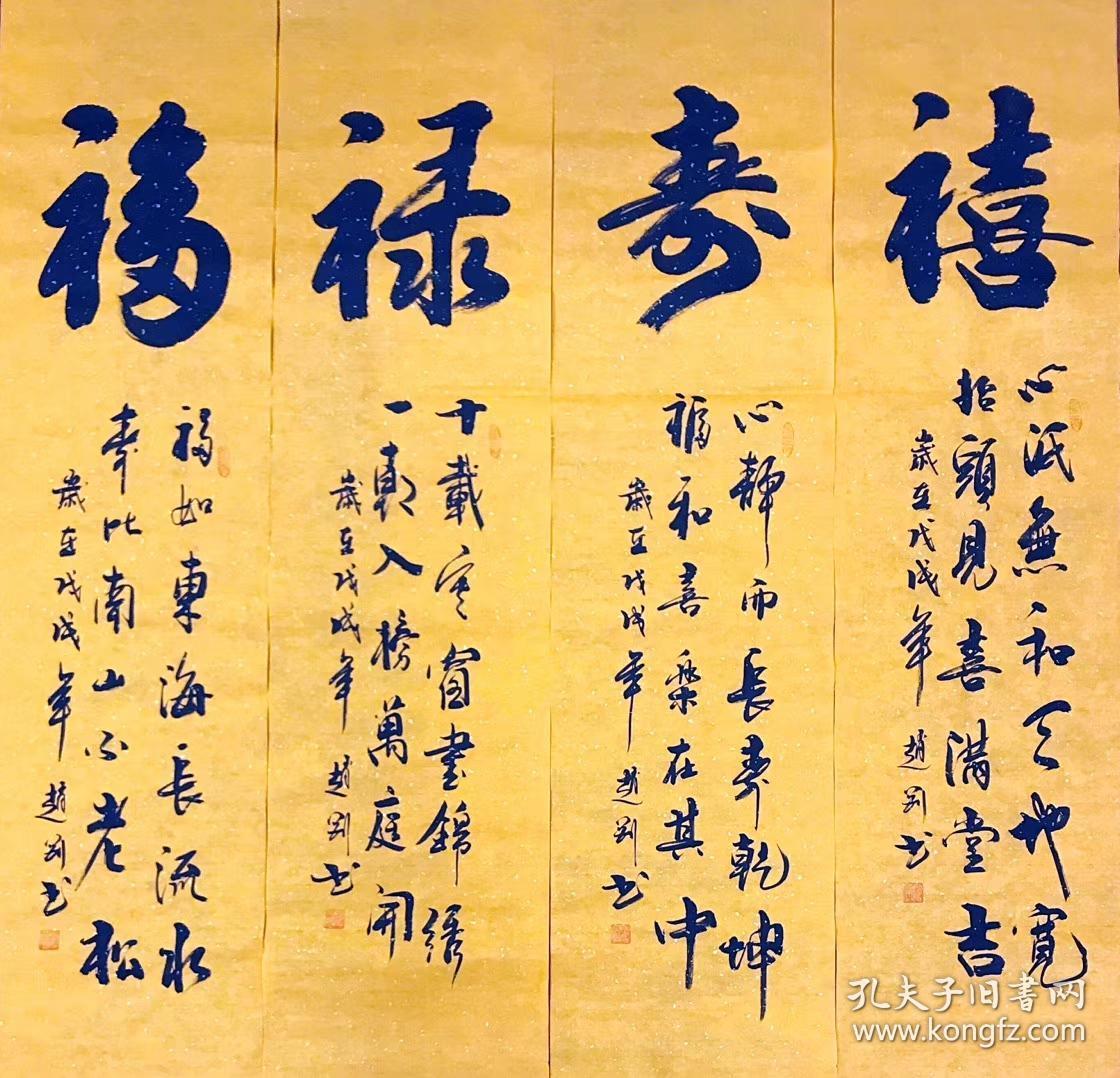 福
福如東海長流水
壽比南山不老松
歲在戊戌年 趙剛书
禄
十載寒窗書錦绣
一朝入榜萬庭開
歲在戊戌年 趙剛书
寿
心静而長寿乾坤
福和喜樂在其中
歲在戊戌年 趙剛书
禧
心底無和天地寬
抬頭見喜满堂吉
歲在戊戌年 趙剛书
孔夫子旧書网
www.kongfz.com